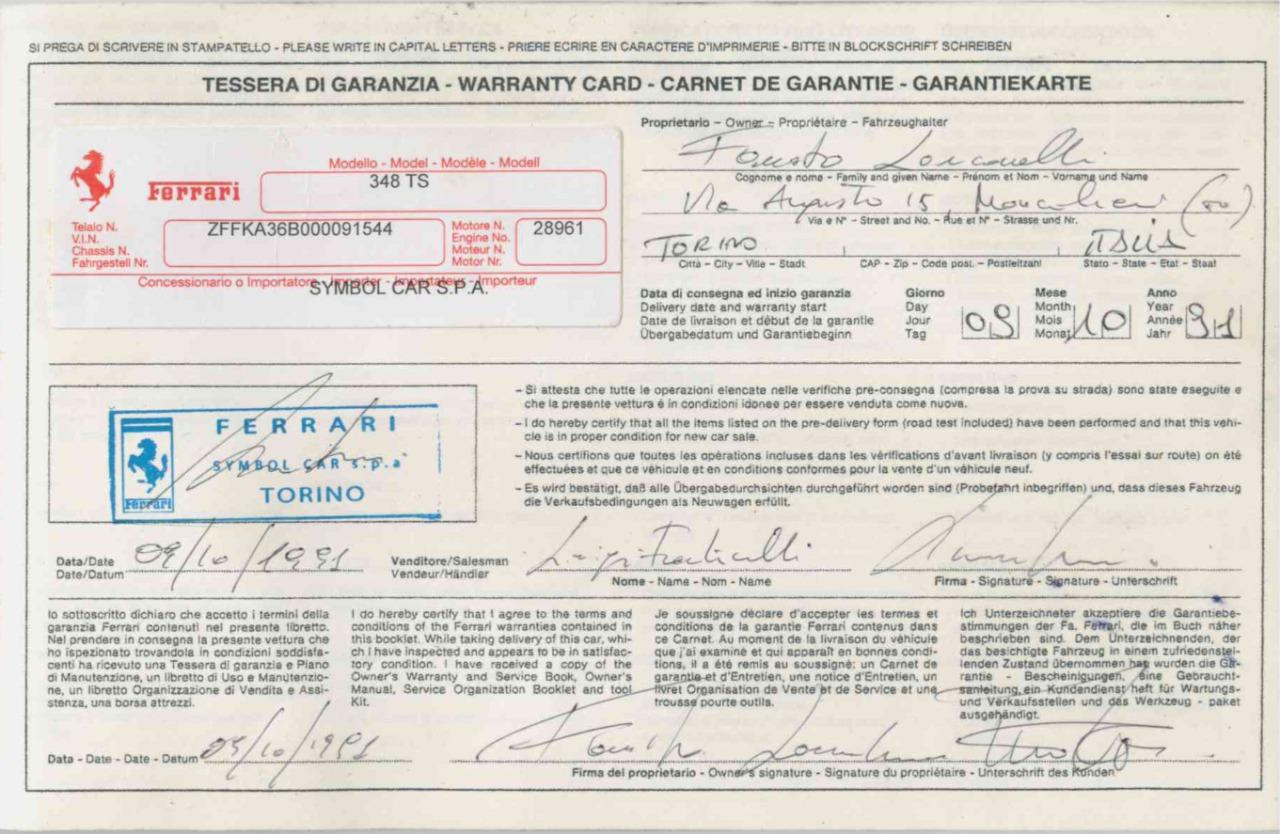 SI PREGA DI SCRIVERE IN STAMPATELLO - PLEASE WRITE IN CAPITAL LETTERS - PRIERE ECRIRE EN CARACTERE D'IMPRIMERIE - BITTE IN BLOCKSCHRIFT SCHREIBEN
TESSERA DI GARANZIA - WARRANTY CARD - CARNET DE GARANTIE - GARANTIEKARTE
Ferrari
Modello - Model - Modèle - Modell
348 TS
Telaio N.
V.I.N.
Chassis N.
Fahrgestell Nr.
ZFFKA36B000091544
Motore N.
Engine No.
Moteur N.
Motor Nr.
28961
Concessionario o Importatore - Importer - Importateur - Importeur
SYMBOL CAR S.P.A.
Proprietario – Owner – Propriétaire – Fahrzeughalter
Fausto
Cognome e nome – Family and given Name – Prénom et Nom – Vorname und Name
Via Augusto 15,
Via e N° – Street and No. – Rue et N° – Strasse und Nr.
TORINO
Città – City – Ville – Stadt
CAP – Zip – Code post. – Postleitzahl
Stato – State – Etat – Staat
Data di consegna ed inizio garanzia
Delivery date and warranty start
Date de livraison et début de la garantie
Übergabedatum und Garantiebeginn
Giorno
Day
Jour
Tag
09
Mese
Month
Mois
Monat
10
Anno
Year
Année
Jahr
91
FERRARI
SYMBOL CAR s.p.a
TORINO
Ferrari
– Si attesta che tutte le operazioni elencate nelle verifiche pre-consegna (compresa la prova su strada) sono state eseguite e
che la presente vettura è in condizioni idonee per essere venduta come nuova.
– I do hereby certify that all the items listed on the pre-delivery form (road test included) have been performed and that this vehi-
cle is in proper condition for new car sale.
– Nous certifions que toutes les opérations incluses dans les vérifications d'avant livraison (y compris l'essai sur route) on été
effectuées et que ce véhicule et en conditions conformes pour la vente d'un véhicule neuf.
– Es wird bestätigt, daß alle Übergabedurchsichten durchgeführt worden sind (Probefahrt inbegriffen) und, dass dieses Fahrzeug
die Verkaufsbedingungen als Neuwagen erfüllt.
Data/Date
Date/Datum
09/10/1991
Venditore/Salesman
Vendeur/Händler
Luigi
Nome - Name - Nom - Name
Firma - Signature - Signature - Unterschrift
Io sottoscritto dichiaro che accetto i termini della
garanzia Ferrari contenuti nel presente libretto.
Nel prendere in consegna la presente vettura che
ho ispezionato trovandola in condizioni soddisfa-
centi ha ricevuto una Tessera di garanzia e Piano
di Manutenzione, un libretto di Uso e Manutenzio-
ne, un libretto Organizzazione di Vendita e Assi-
stenza, una borsa attrezzi.
I do hereby certify that I agree to the terms and
conditions of the Ferrari warranties contained in
this booklet. While taking delivery of this car, whi-
ch I have inspected and appears to be in satisfac-
tory condition. I have received a copy of the
Owner's Warranty and Service Book, Owner's
Manual, Service Organization Booklet and tool
Kit.
Je soussigné déclare d'accepter les termes et
conditions de la garantie Ferrari contenus dans
ce Carnet. Au moment de la livraison du véhicule
que j'ai examiné et qui apparaît en bonnes condi-
tions, il a été remis au soussigné: un Carnet de
garantie et d'Entretien, une notice d'Entretien, un
livret Organisation de Vente et de Service et une
trousse pourte outils.
Ich Unterzeichneter akzeptiere die Garantiebe-
stimmungen der Fa. Ferrari, die im Buch näher
beschrieben sind. Dem Unterzeichnenden, der
das besichtigte Fahrzeug in einem zufriedenstel-
lenden Zustand übernommen hat wurden die Ga-
rantie - Bescheinigungen, eine Gebraucht-
sanleitung, ein Kundendienst heft für Wartungs-
und Verkaufsstellen und das Werkzeug - paket
ausgehändigt.
Data - Date - Date - Datum
09/10/1991
Firma del proprietario - Owner's signature - Signature du propriétaire - Unterschrift des Kunden